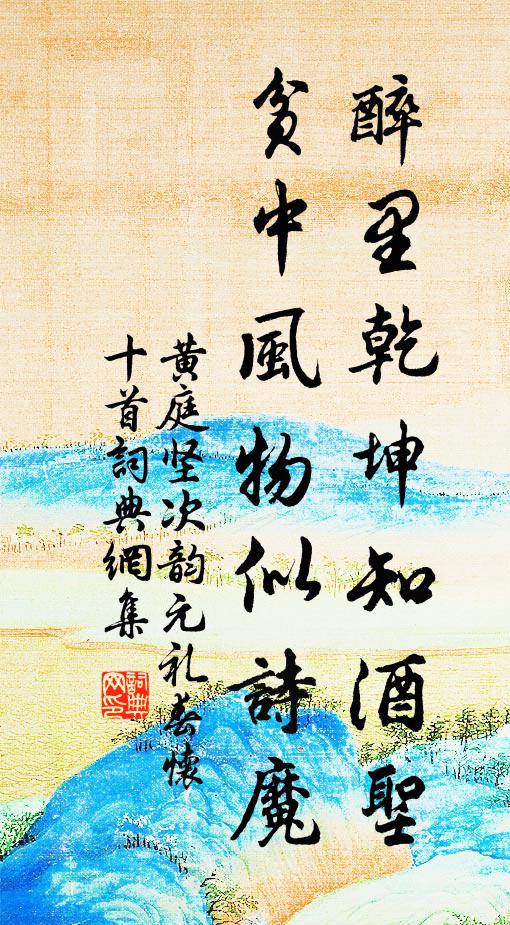 醉里乾坤知酒聖
貧中風物似詩魔
黃庭坚次韵元礼春懷
十首詞典網集
詞典
网印